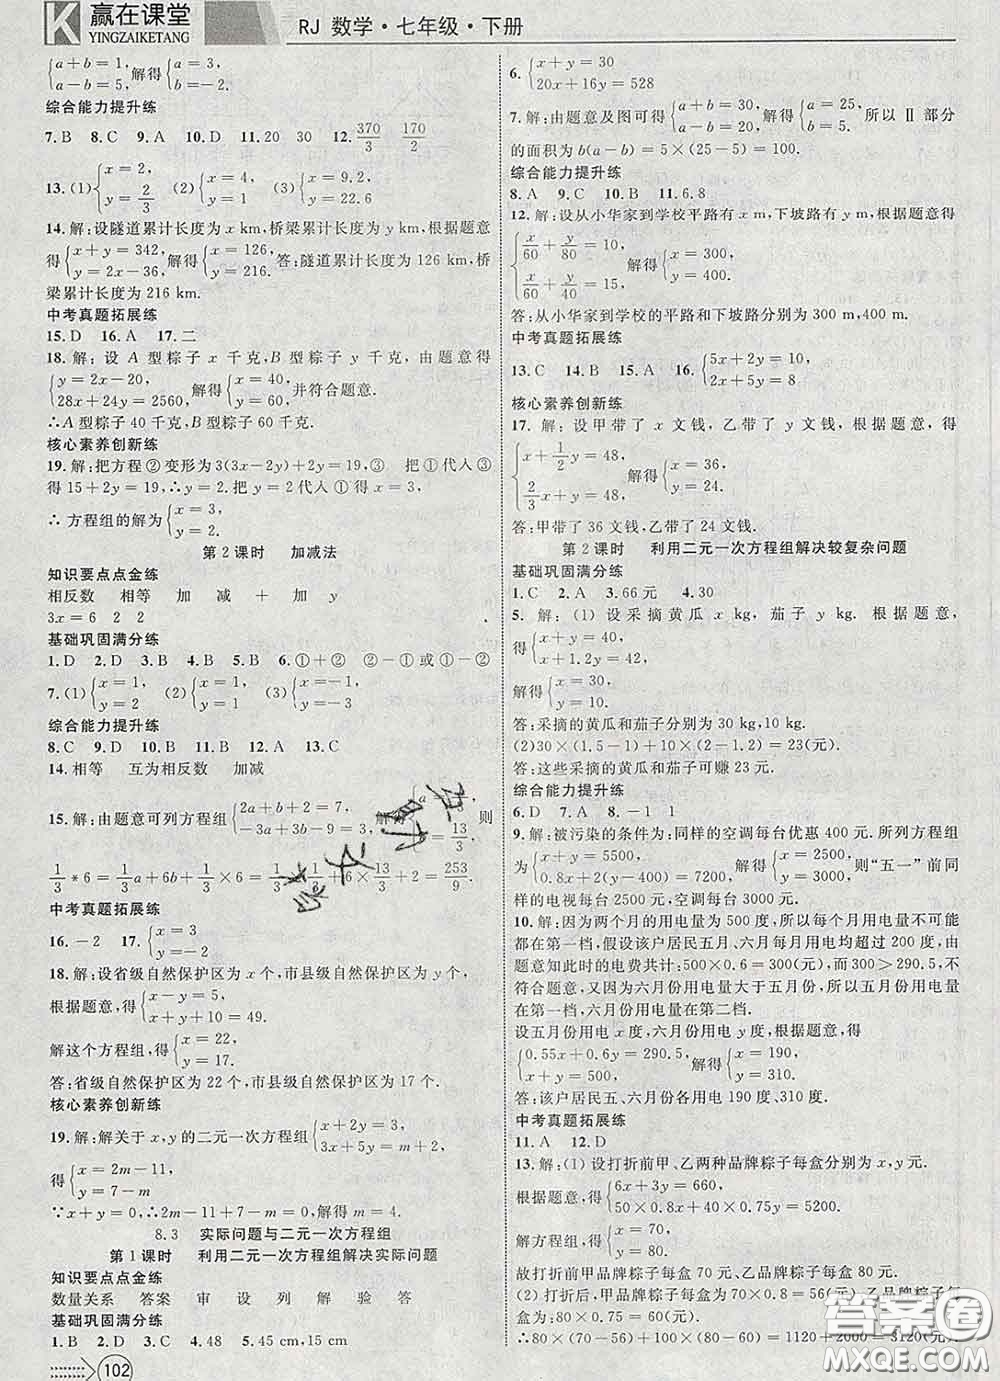 K 赢在课堂 YINGZAIKETANG
RJ 数学·七年级·下册
{a+b=1, a-b=5, 解得{a=3, b=-2.
综合能力提升练
7.B 8.C 9.A 10.D 11.20 30 12.370/3 170/2
13.(1){x=2, y=2/3 (2){x=4, y=1 (3){x=9.2, y=22.6
14.解:设隧道累计长度为x km,桥梁累计长度为y km,根据题意
得{x+y=342, y=2x-36, 解得{x=126, y=216. 答:隧道累计长度为126 km,桥
梁累计长度为216 km.
中考真题拓展练
15.D 16.A 17.二
18.解:设A型粽子x千克,B型粽子y千克,由题意得
{y=2x-20, 28x+24y=2560, 解得{x=40, y=60, 并符合题意.
∴A型粽子40千克,B型粽子60千克.
核心素养创新练
19.解:把方程②变形为3(3x-2y)+2y=19,③ 把①代入③
得15+2y=19,∴y=2. 把y=2代入①得x=3,
∴方程组的解为{x=3, y=2.
第2课时 加减法
知识要点点金练
相反数 相等 加 减 + 加 y
3x=6 2 2
基础巩固满分练
1.D 2.D 3.B 4.B 5.B 6.①+② ②-①或①-②
7.(1){x=1, y=1 (2){x=1, y=1 (3){x=-1, y=-3
综合能力提升练
8.C 9.D 10.B 11.B 12.A 13.C
14.相等 互为相反数 加减
15.解:由题意可列方程组{2a+b+2=7, -3a+3b-3=9, 则
1/3*6=1/3a+6b+1/3×6=1/3×1/3+6×13/3+2=253/9.
中考真题拓展练
16.-2 17.{x=3 y=-2
18.解:设省级自然保护区为x个,市县级自然保护区为y个,
根据题意,得{x-y=5, x+y+10=49.
解这个方程组,得{x=22, y=17.
答:省级自然保护区为22个,市县级自然保护区为17个.
核心素养创新练
19.解:解关于x,y的二元一次方程组{x+2y=3, 3x+5y=m+2,
得{x=2m-11, y=7-m.
∵x+y=0,∴2m-11+7-m=0,解得m=4.
8.3 实际问题与二元一次方程组
第1课时 利用二元一次方程组解决实际问题
知识要点点金练
数量关系 答案 审 设 列 解 验 答
基础巩固满分练
1.B 2.D 3.D 4.48 5.45 cm,15 cm
102
6.{x+y=30 20x+16y=528
7.解:由题意及图可得{a+b=30, a-b=20, 解得{a=25, b=5. 所以Ⅱ部分
的面积为b(a-b)=5×(25-5)=100.
综合能力提升练
8.A 9.C 10.B 11.6.8
12.解:设从小华家到学校平路有x m,下坡路有y m,根据题意得
{x/60+y/80=10, x/60+y/40=15, 解得{x=300, y=400.
答:从小华家到学校的平路和下坡路分别为300 m,400 m.
中考真题拓展练
13.C 14.B 15.A 16.{5x+2y=10 2x+5y=8
核心素养创新练
17.解:设甲带了x文钱,乙带了y文钱,根据题意,得
{x+1/2y=48, 2/3x+y=48, 解得{x=36, y=24.
答:甲带了36文钱,乙带了24文钱.
第2课时 利用二元一次方程组解决较复杂问题
基础巩固满分练
1.C 2.A 3.66元 4.30
5.解:(1)设采摘黄瓜x kg,茄子y kg. 根据题意,
得{x+y=40, x+1.2y=42,
解得{x=30, y=10.
答:采摘的黄瓜和茄子分别为30 kg,10 kg.
(2)30×(1.5-1)+10×(2-1.2)=23(元).
答:这些采摘的黄瓜和茄子可赚23元.
综合能力提升练
6.D 7.A 8.-1 1
9.解:被污染的条件为:同样的空调每台优惠400元.所列方程组
为{x+y=5500, 0.8x+2(y-400)=7200, 解得{x=2500, y=3000, 则“五一”前同
样的电视每台2500元,空调每台3000元.
10.解:因为两个月的用电量为500度,所以每个月用电量不可能
都在第一档,假设该户居民五月、六月每月用电均超过200度,由
题意知此时的电费共计:500×0.6=300(元),而300>290.5,不
符合题意,又因为六月份用电量大于五月份,所以五月份用电量
在第一档,六月份用电量在第二档.
设五月份用电x度,六月份用电y度,根据题意,得
{0.55x+0.6y=290.5, x+y=500, 解得{x=190, y=310.
答:该户居民五、六月份各用电190度、310度.
中考真题拓展练
11.A 12.D
13.解:(1)设打折前甲、乙两种品牌粽子每盒分别为x,y元.
根据题意,得{6x+3y=660, 50×0.8x+40×0.75y=5200,
解方程组,得{x=70, y=80.
故打折前甲品牌粽子每盒70元,乙品牌粽子每盒80元.
(2)打折后,甲品牌粽子每盒为70×0.8=56(元),乙品牌粽子每
盒为80×0.75=60(元).
∴80×(70-56)+100×(80-60)=1120+2000=3120(元).
答案圈
MXQE.COM